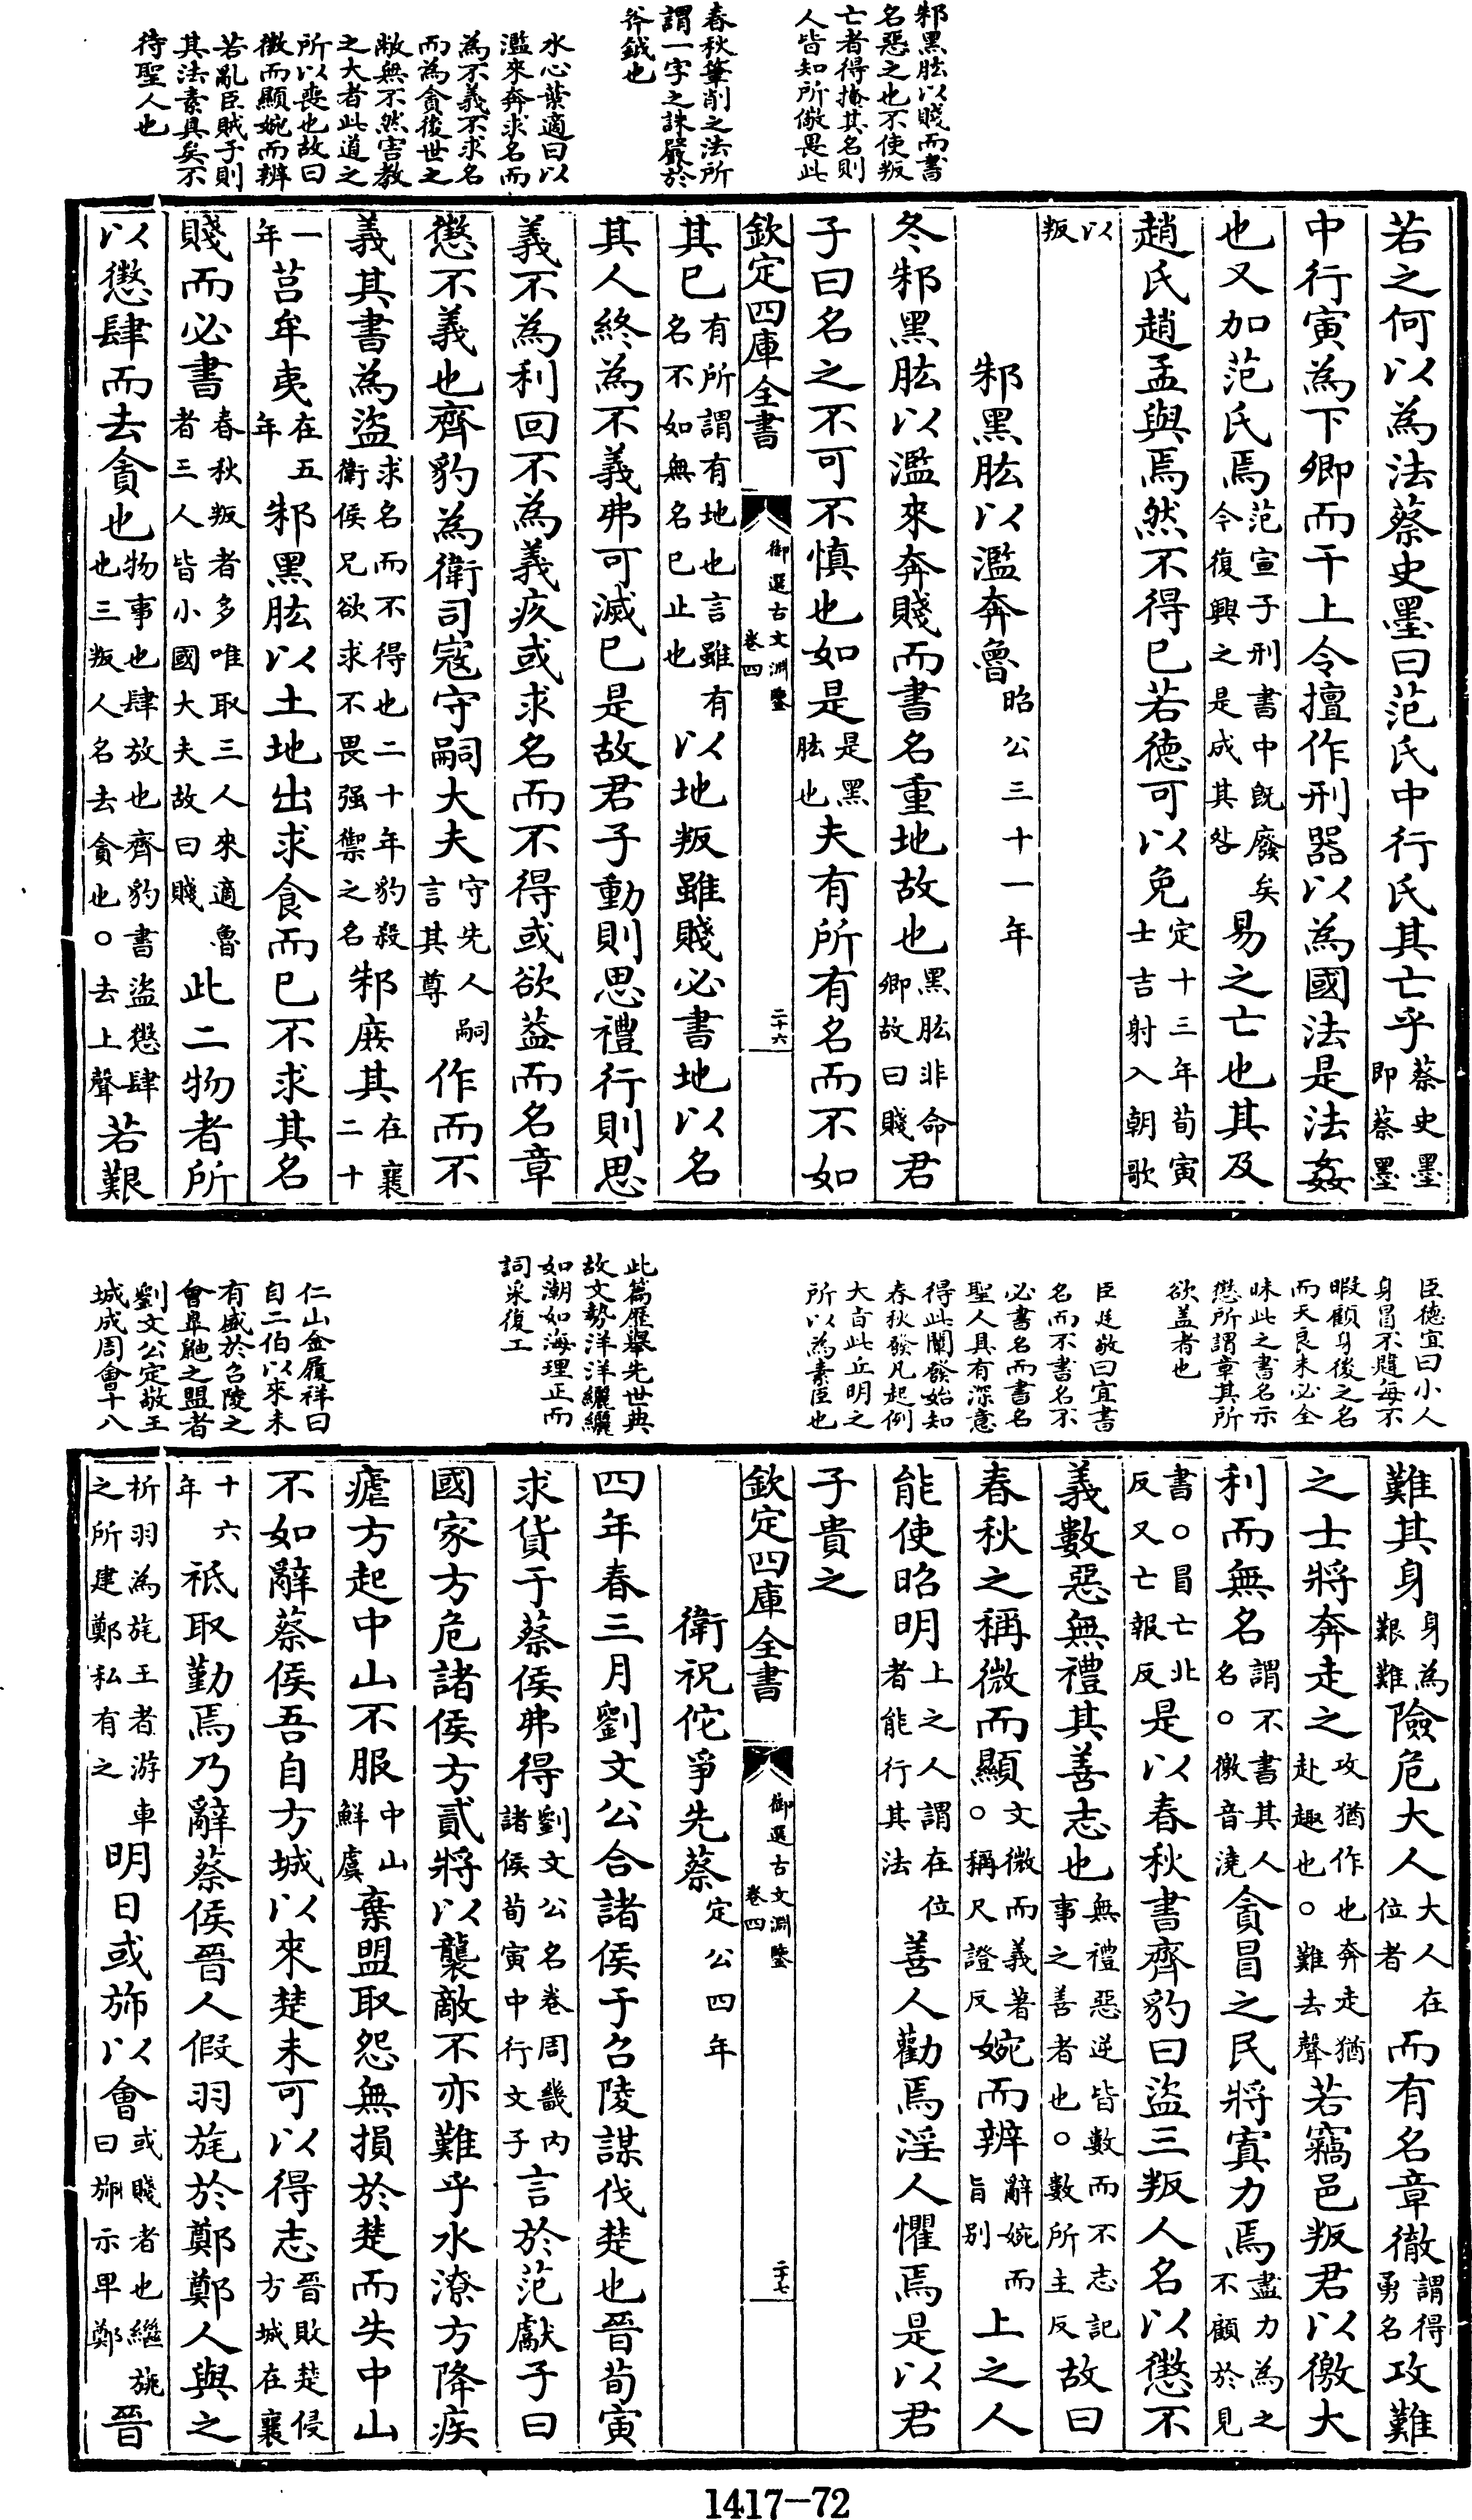 邾黑肱以賤而書
名惡之也不使叛
亡者得掩其名則
人皆知所儆畏此
春秋筆削之法所
謂一字之誅嚴於
斧鉞也
水心葉適曰以
濫來奔求名而
為不義不求名
而為貪後世之
敝無不然害教
之大者此道之
所以喪也故曰
微而顯婉而辨
若亂臣賊子則
其法素具矣不
待聖人也
若之何以為法蔡史墨曰范氏中行氏其亡乎蔡史墨即蔡墨
中行寅為下卿而干上令擅作刑器以為國法是法姦
也又加范氏焉范宣子刑書中既廢矣今復興之是成其咎易之亡也其及
趙氏趙孟與焉然不得已若德可以免定十三年荀寅士吉射入朝歌
以叛
邾黑肱以濫奔魯昭公三十一年
冬邾黑肱以濫來奔賤而書名重地故也黑肱非命卿故曰賤君
子曰名之不可不慎也如是是黑肱也夫有所有名而不如
欽定四庫全書 御選古文淵鑒 卷四 二十六
其已有所謂有地也言雖有名不如無名已止也以地叛雖賤必書地以名
其人終為不義弗可滅已是故君子動則思禮行則思
義不為利回不為義疚或求名而不得或欲葢而名章
懲不義也齊豹為衛司寇守嗣大夫守先人嗣言其尊作而不
義其書為盜求名而不得也二十年豹殺衛侯兄欲求不畏强禦之名邾庶其在襄二十
一年莒牟夷在五年邾黑肱以土地出求食而已不求其名
賤而必書春秋叛者多唯取三人來適魯者三人皆小國大夫故曰賤此二物者所
以懲肆而去貪也物事也肆放也齊豹書盜懲肆也三叛人名去貪也○去上聲若艱
臣德宜曰小人
身冒不韙每不
暇顧身後之名
而天良未必全
昧此之書名示
懲所謂章其所
欲蓋者也
臣廷敬曰宜書
名而不書名不
必書名而書名
聖人具有深意
得此闡發始知
春秋發凡起例
大旨此丘明之
所以為素臣也
此篇歷舉先世典
故文勢洋洋纚纚
如潮如海理正而
詞采復工
仁山金履祥曰
自二伯以來未
有盛於召陵之
會皐鼬之盟者
劉文公定敬王
城成周會十八
難其身身為艱難險危大人大人在位者而有名章徹謂得勇名攻難
之士將奔走之攻猶作也奔走猶赴趣也○難去聲若竊邑叛君以徼大
利而無名謂不書其人名○徼音澆貪冒之民將寘力焉盡力為之不顧於見
書○冒亡北反又亡報反是以春秋書齊豹曰盜三叛人名以懲不
義數惡無禮其善志也無禮惡逆皆數而不志記事之善者也○數所主反故曰
春秋之稱微而顯文微而義著○稱尺證反婉而辨辭婉而旨别上之人
能使昭明上之人謂在位者能行其法善人勸焉淫人懼焉是以君
子貴之
欽定四庫全書 御選古文淵鑒 卷四 二十七
衛祝佗爭先蔡定公四年
四年春三月劉文公合諸侯于召陵謀伐楚也晉荀寅
求貨于蔡侯弗得劉文公名卷周畿內諸侯荀寅中行文子言於范獻子曰
國家方危諸侯方貳將以襲敵不亦難乎水潦方降疾
瘧方起中山不服中山鮮虞棄盟取怨無損於楚而失中山
不如辭蔡侯吾自方城以來楚未可以得志晉敗楚侵方城在襄
十六年祗取勤焉乃辭蔡侯晉人假羽旄於鄭鄭人與之
析羽為旄王者游車之所建鄭私有之明日或旆以會或賤者也繼旐曰旆示卑鄭晉
1417—72